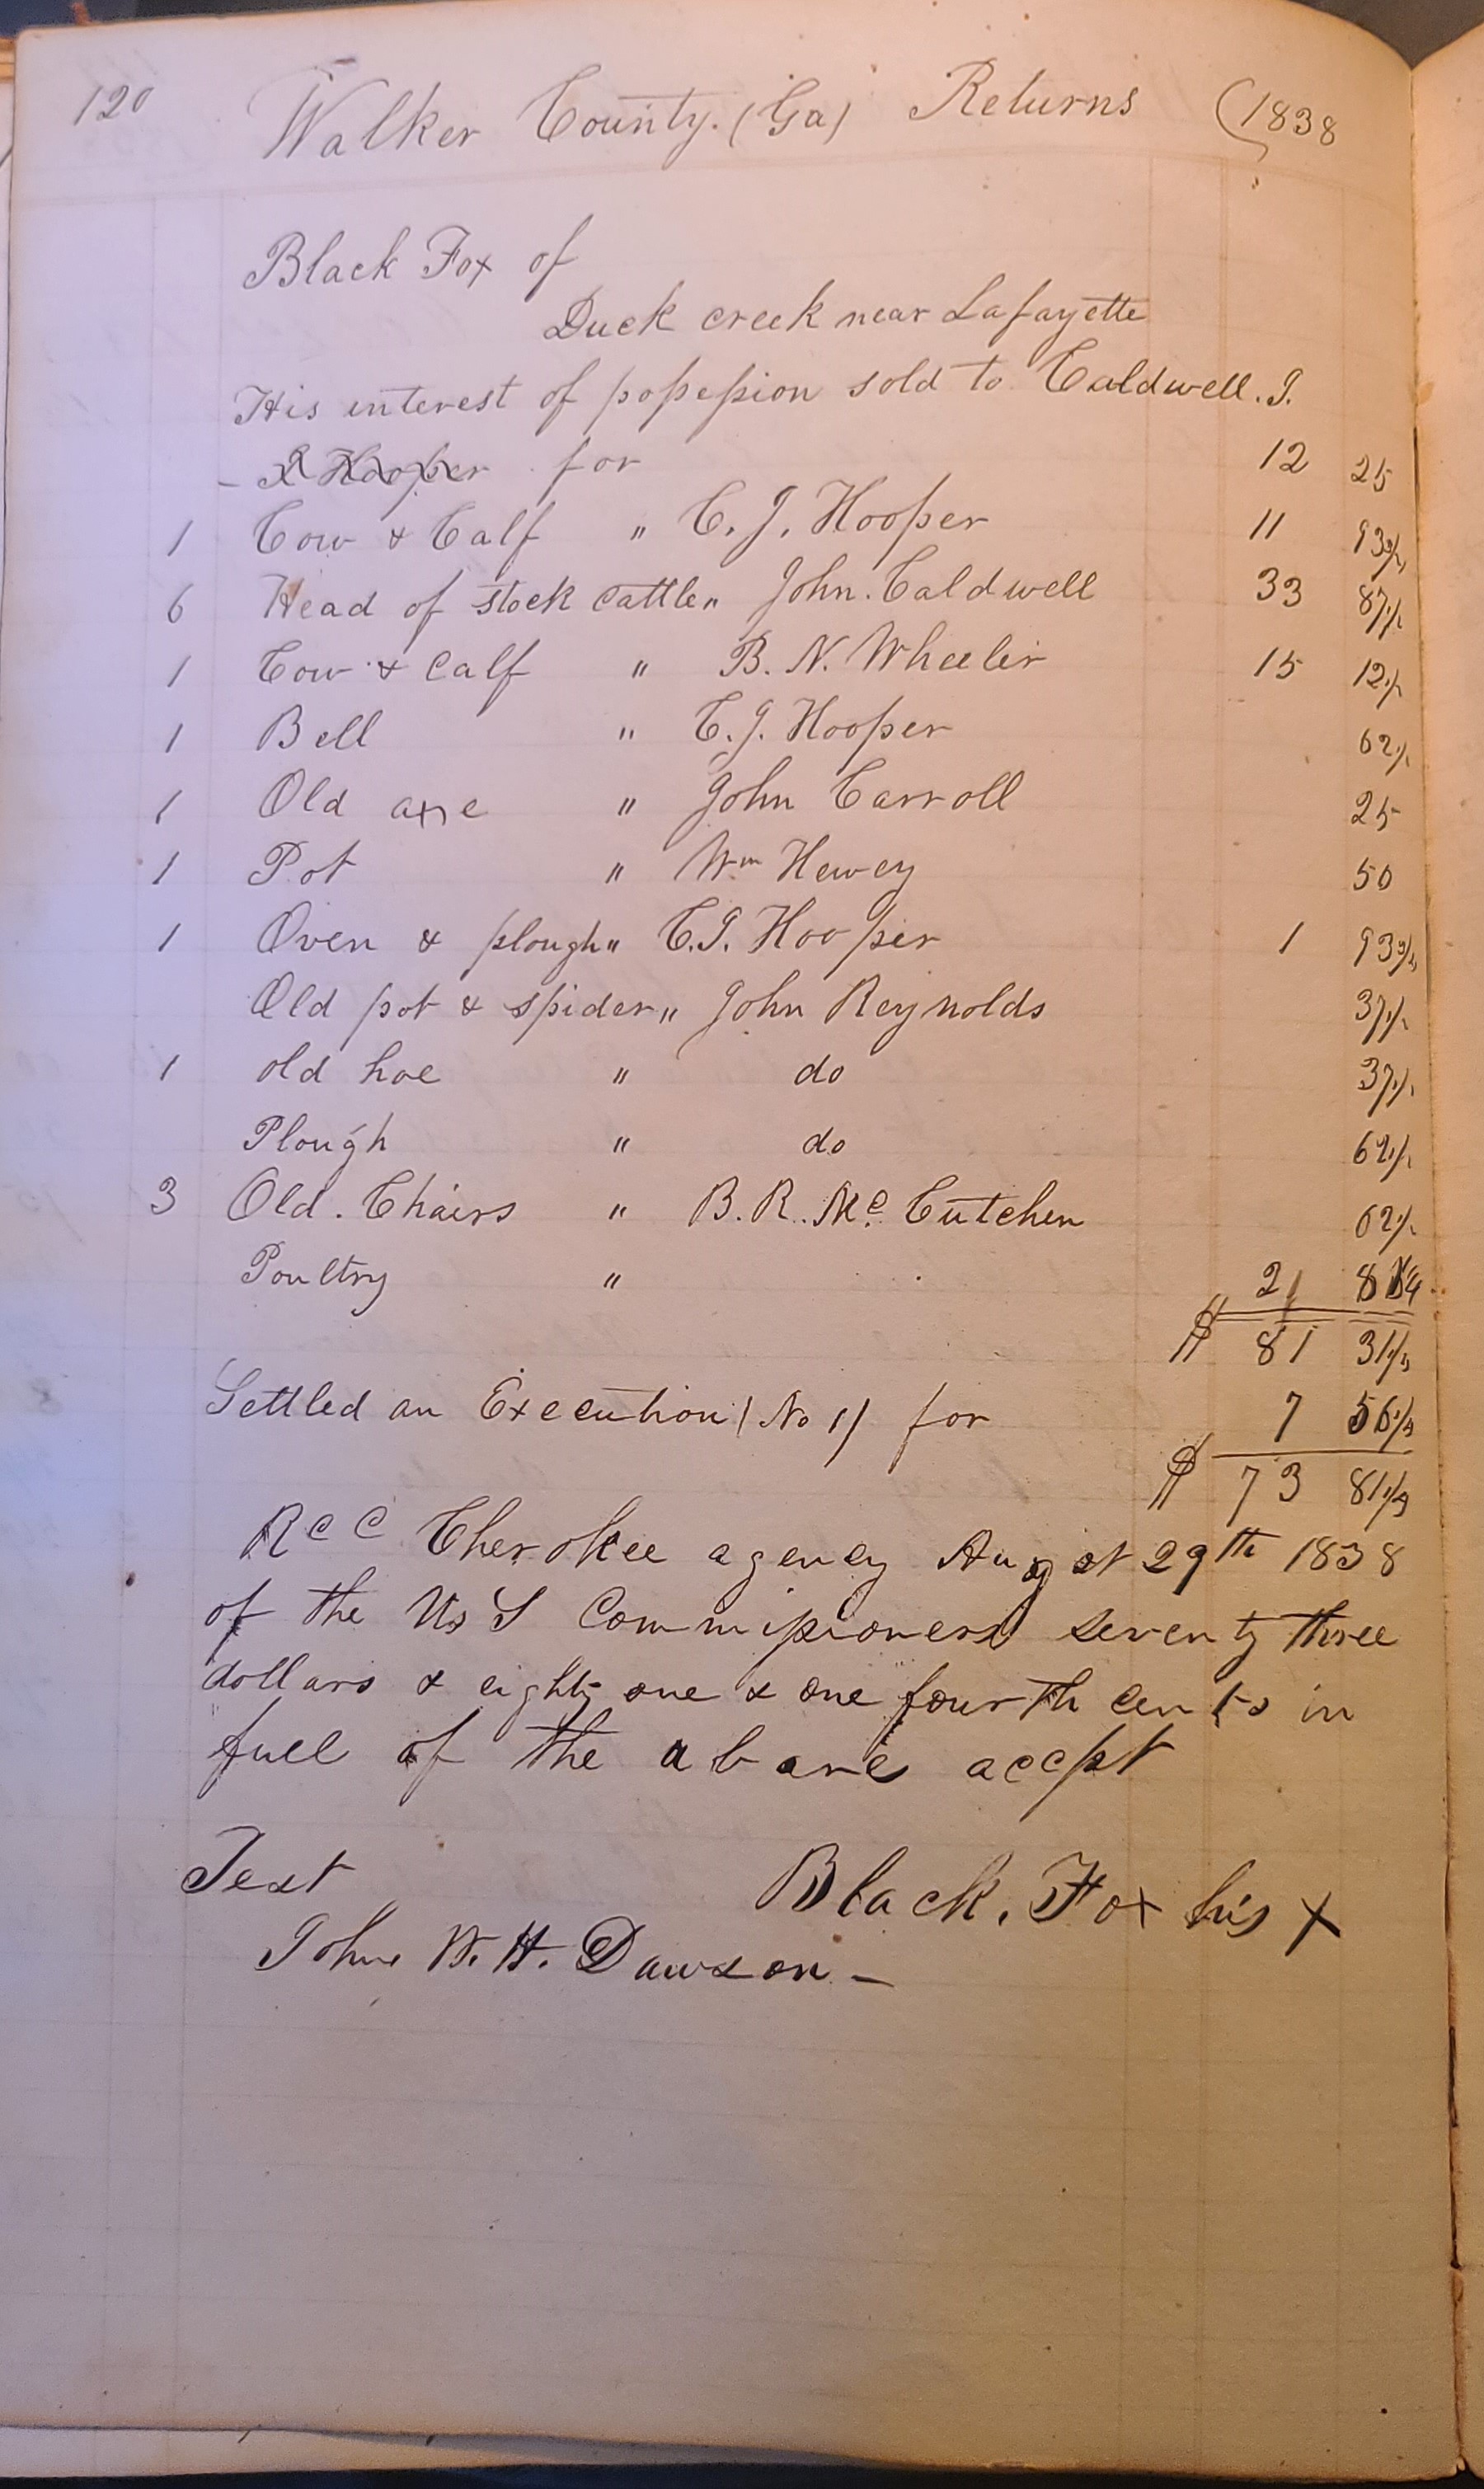 120 Walker County. (Ga) Returns (1838
Black Fox of
Duck creek near Lafayette
His interest of possession sold to Caldwell. J.
for 12 25
1 Cow & Calf " C. J. Hooper 11 93 3/4
6 Head of stock cattle " John. Caldwell 33 87 1/2
1 Cow & Calf " B. N. Wheeler 15 12 1/2
1 Bell " C. J. Hooper 62 1/2
1 Old axe " John Carroll 25
1 Pot " Wm Hewey 50
1 Oven & plough " C. J. Hooper 1 93 3/4
Old pot & spider " John Reynolds 37 1/2
1 old hoe " do 37 1/2
Plough " do 62 1/2
3 Old. Chairs " B. R. Mc. Cutchen 62 1/2
Poultry " 2
$ 81 31 1/2
Settled an Execution (No 1) for 7 56 1/4
$ 73 81 1/4
Rec Cherokee agency August 29th 1838
of the U S Commissioners seventy three
dollars & eighty one & one fourth cents in
full of the above accpt
Test Black. Fox his X
John W. H. Dawson –